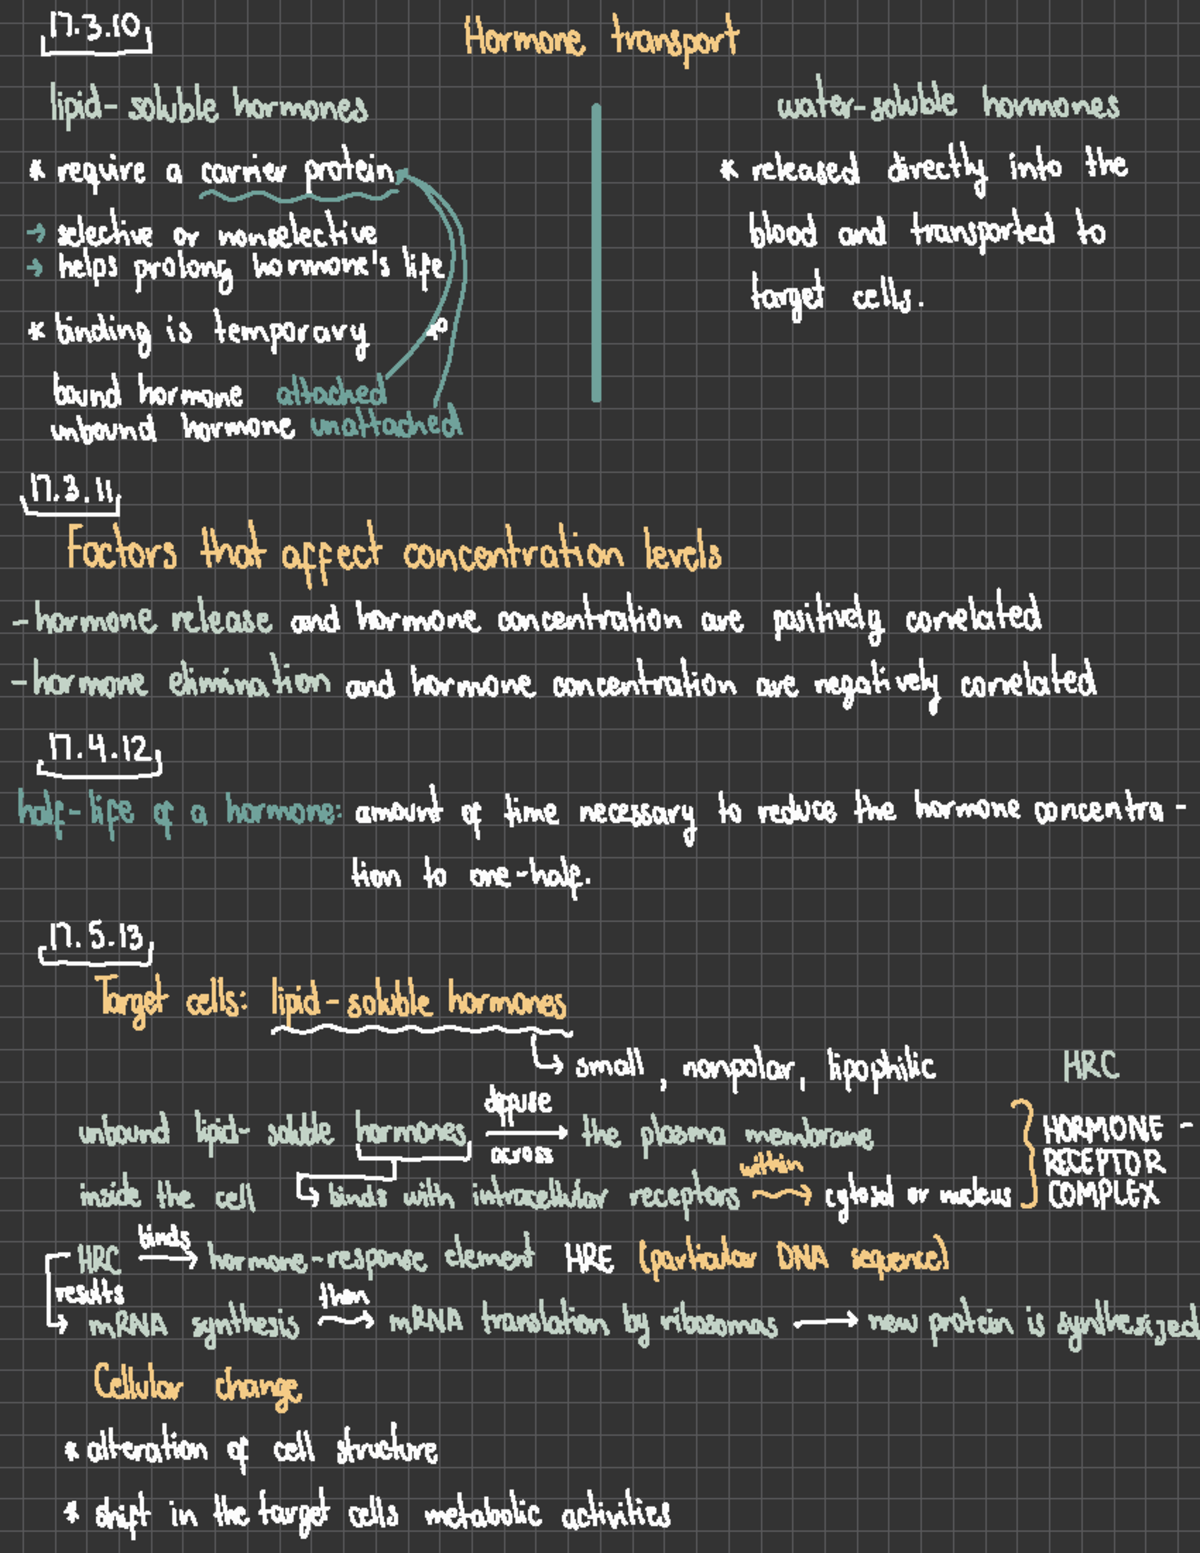 17.3.10
Hormone transport
lipid-soluble hormones
* require a carrier protein
→ selective or nonselective
→ helps prolong hormone's life
* binding is temporary
bound hormone attached
unbound hormone unattached
water-soluble hormones
* released directly into the
blood and transported to
target cells.
17.3.11
Factors that affect concentration levels
- hormone release and hormone concentration are positively correlated
- hormone elimination and hormone concentration are negatively correlated
17.4.12
half-life of a hormone: amount of time necessary to reduce the hormone concentra-
tion to one-half.
17.5.13
Target cells: lipid-soluble hormones
↳ small, nonpolar, lipophilic
HRC
HORMONE-
RECEPTOR
COMPLEX
diffuse
unbound lipid-soluble hormones → the plasma membrane
across
within
inside the cell ↳ binds with intracellular receptors → cytosol or nucleus
binds
HRC → hormone-response element HRE (particular DNA sequence)
results then
→ mRNA synthesis → mRNA translation by ribosomas → new protein is synthesized
Cellular change
* alteration of cell structure
* shift in the target cells metabolic activities